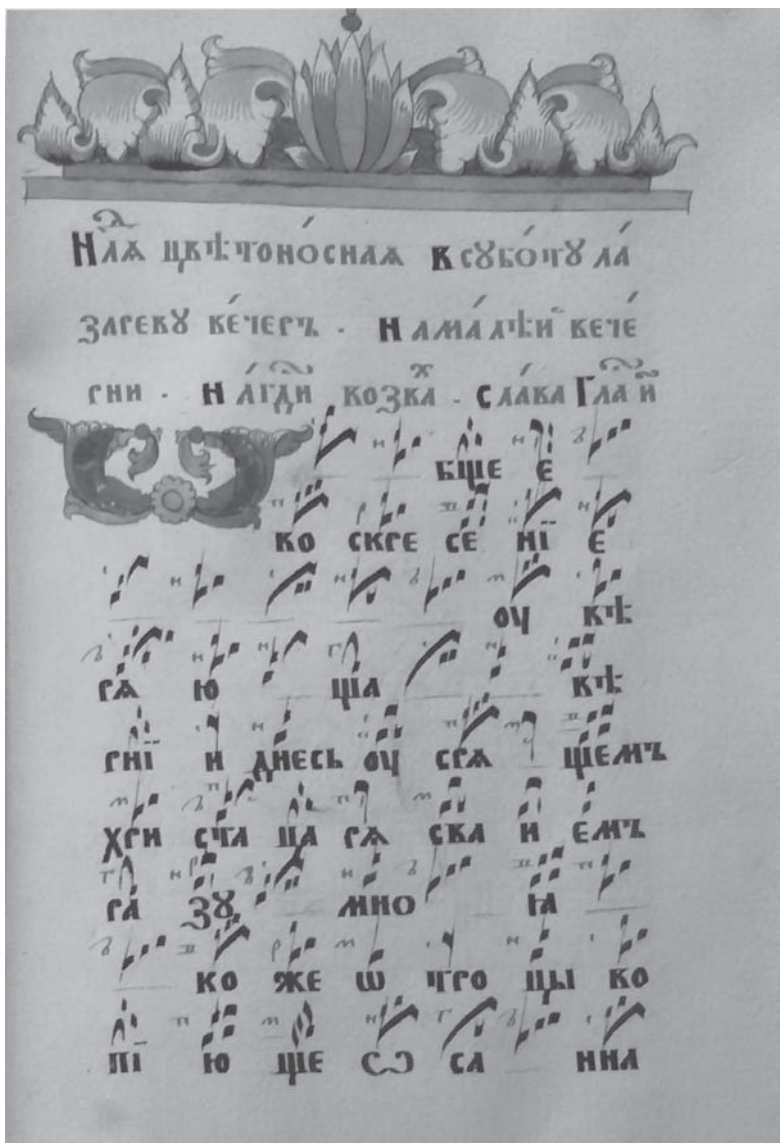 Нлѧ цвѣтоно́снаѧ в сꙋбо́тꙋ ла́
заревꙋ ве́черъ . на ма́лѣи вече́
рни . на́ гди возва . сла́ва Гла и҃
бще е
во скре се нї е
оу вѣ
рѧ ю ща вѣ
рнї и днесь оу срѧ щемъ
хри ста ца рѧ сва и емъ
ра́ зꙋ мно ꙗ
ко же ѡ тро цы во
пї ю ще ѡ са нна